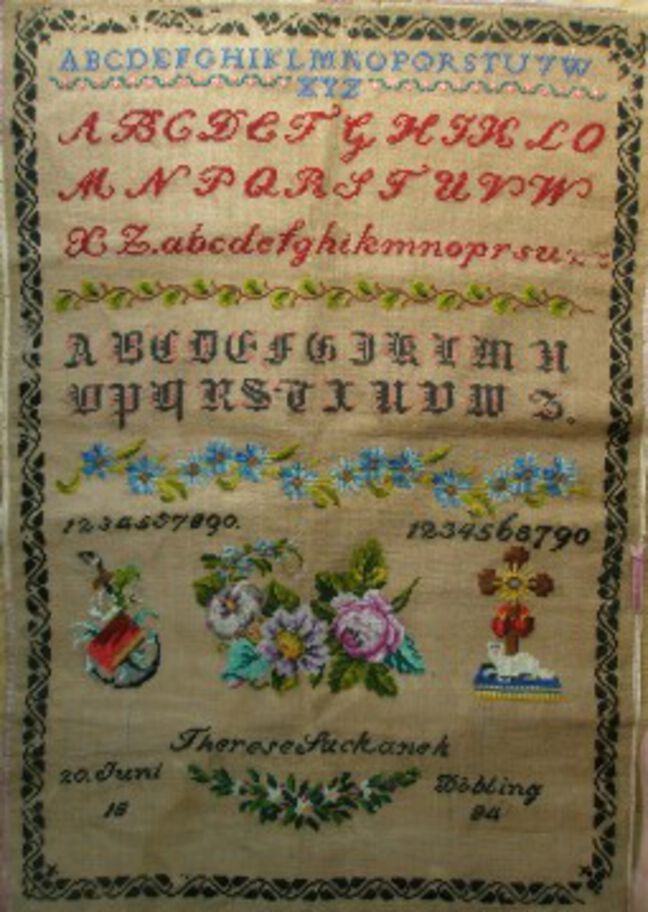 ABCDEFGHIKLMNOPQRSTUVW
XYZ
A B C D E F G H I K L O
M N P Q R S T U V W
X Z. abcdefghikmnoprsu
A B C D E F G H I K L M N
O P Q R S T X U V W Z.
1234567890. 1234567890
Therese Suckanek
20. Juni Döbling
18 94